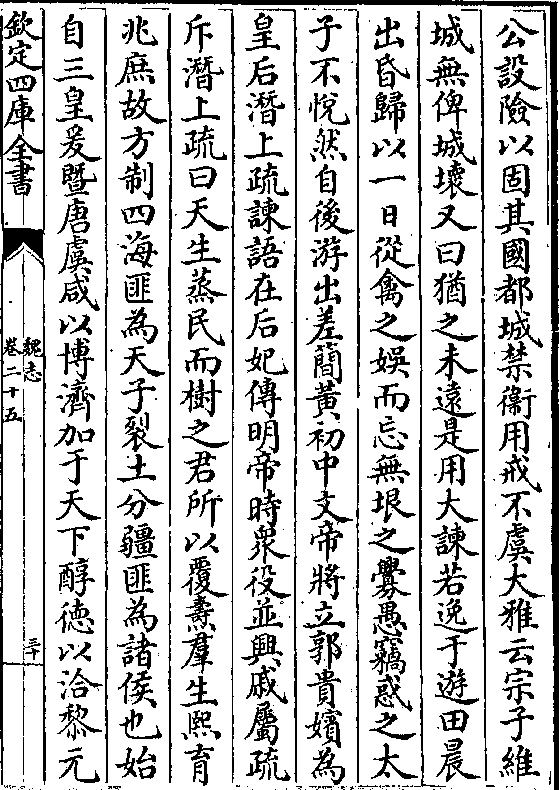 公設險以固其國都城禁衞用戒不虞大雅云宗子維
城無俾城壞又曰猶之未遠是用大諫若逸于遊田晨
出昏歸以一日從禽之娛而忘無垠之釁愚竊惑之太
子不悅然自後游出差簡黃初中文帝將立郭貴嬪為
皇后潛上疏諫語在后妃傳明帝時衆役並興戚屬疏
斥潛上疏曰天生蒸民而樹之君所以覆燾羣生熙育
兆庶故方制四海匪為天子裂土分疆匪為諸侯也始
自三皇爰暨唐虞咸以博濟加于天下醇徳以洽黎元
欽定四庫全書
魏志
卷二十五
三十